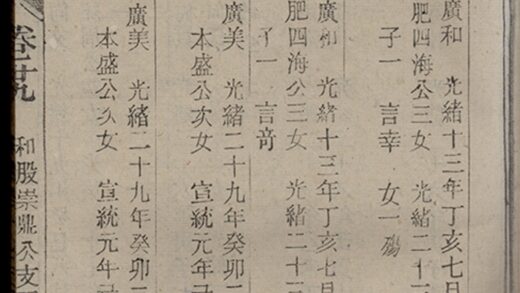 廣和 光緒十三年丁亥七月
肥四海公三女 光緒二十
子一 言幸 女一殤
廣和 光緒十三年丁亥七月
肥四海公三女 光緒二十三
子一 言奇
廣美 光緒二十九年癸卯二
本盛公次女 宣統元年己
廣美 光緒二十九年癸卯二
本盛公次女 宣統元年
卷之廿九 和股崇鼎公支